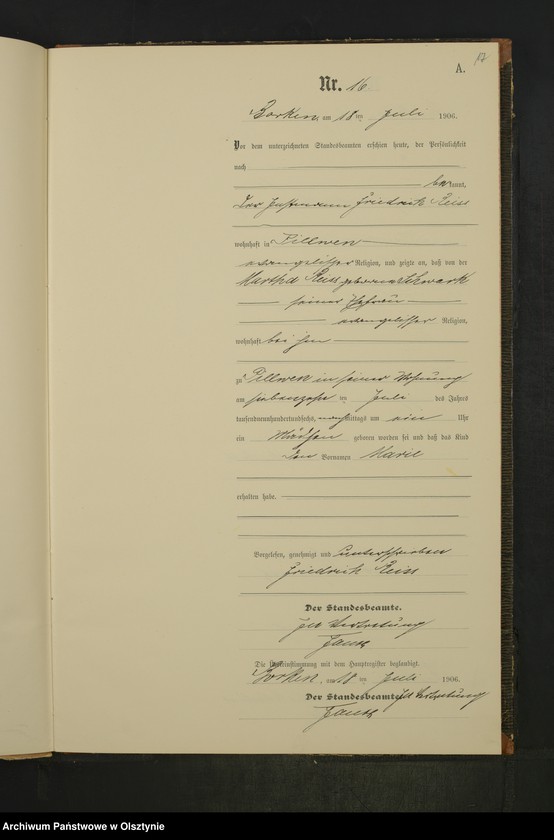 17
A.
Nr. 16.
Borken, am 18 ten Juli 1906.
Vor dem unterzeichneten Standesbeamten erschien heute, der Persönlichkeit
nach
bekannt,
der Instmann Friedrich Reiss
wohnhaft in Pillwen
evangelischer Religion, und zeigte an, daß von der
Martha Reiss geborene
seiner Ehefrau
evangelischer Religion,
wohnhaft bei ihm
zu Pillwen in seiner Wohnung
am siebenzehn ten Juli des Jahres
tausendneunhundertundsechs, nachmittags um ein Uhr
ein Mädchen geboren worden sei und daß das Kind
den Vornamen Marie
erhalten habe.
Vorgelesen, genehmigt und unterschrieben
Friedrich Reiss
Der Standesbeamte.
In Vertretung
Die Übereinstimmung mit dem Hauptregister beglaubigt.
Borken, am 18 ten Juli 1906.
Der Standesbeamte. In Vertretung
Archiwum Państwowe w Olsztynie